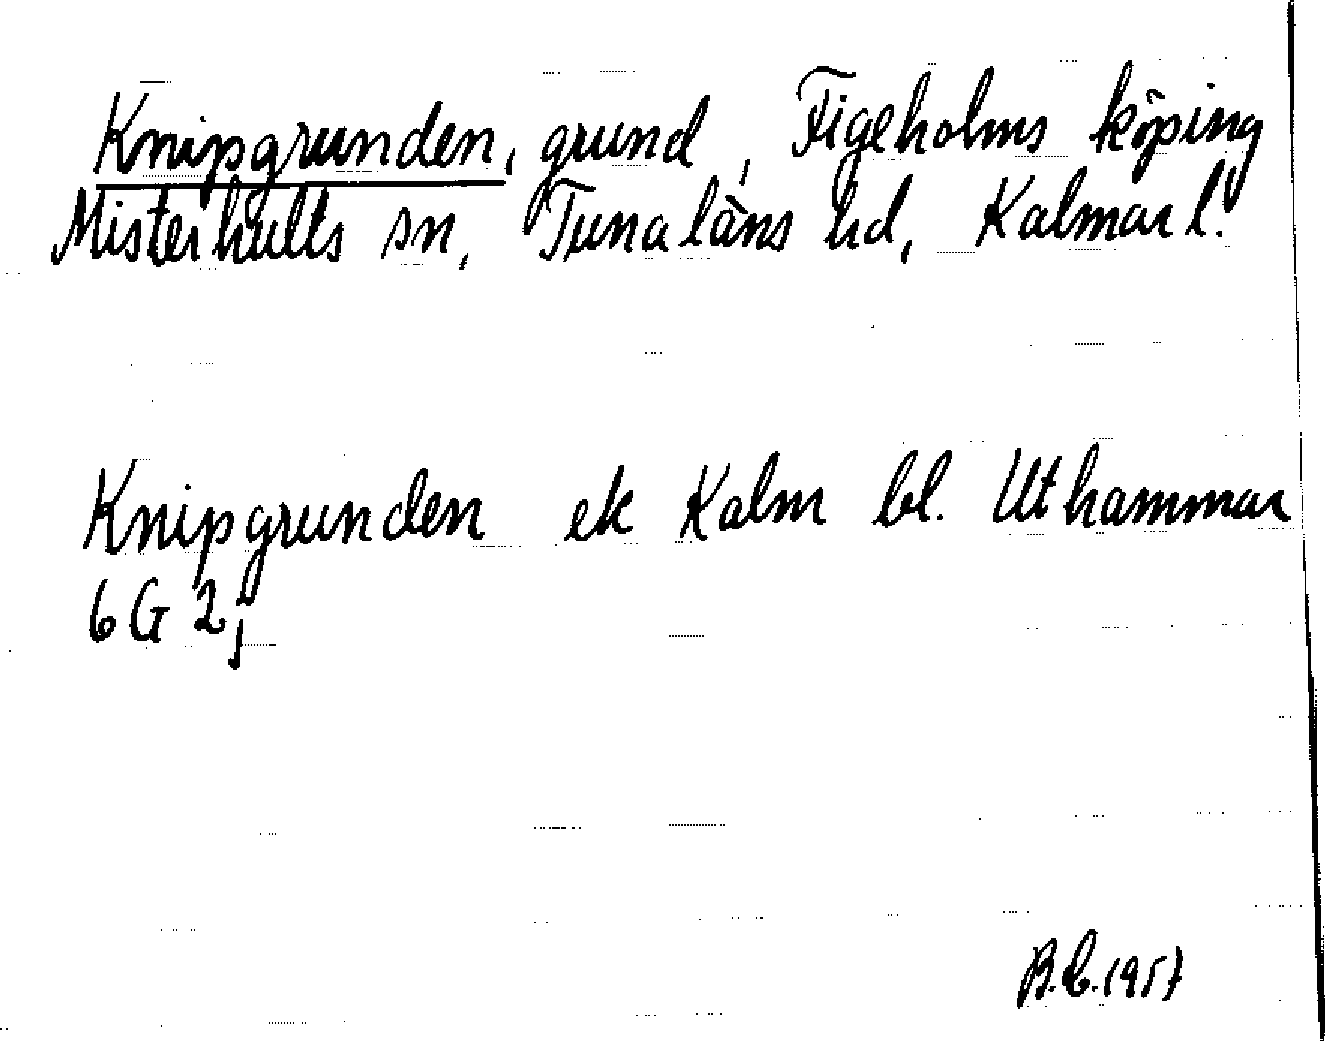 Knipgrunden, grund, Figeholms köping
Misterhults sn, Tunaläns hd, Kalmar l.
Knipgrunden ek Kalm bl. Uthammar
6 G 2 j
B.E. 1957